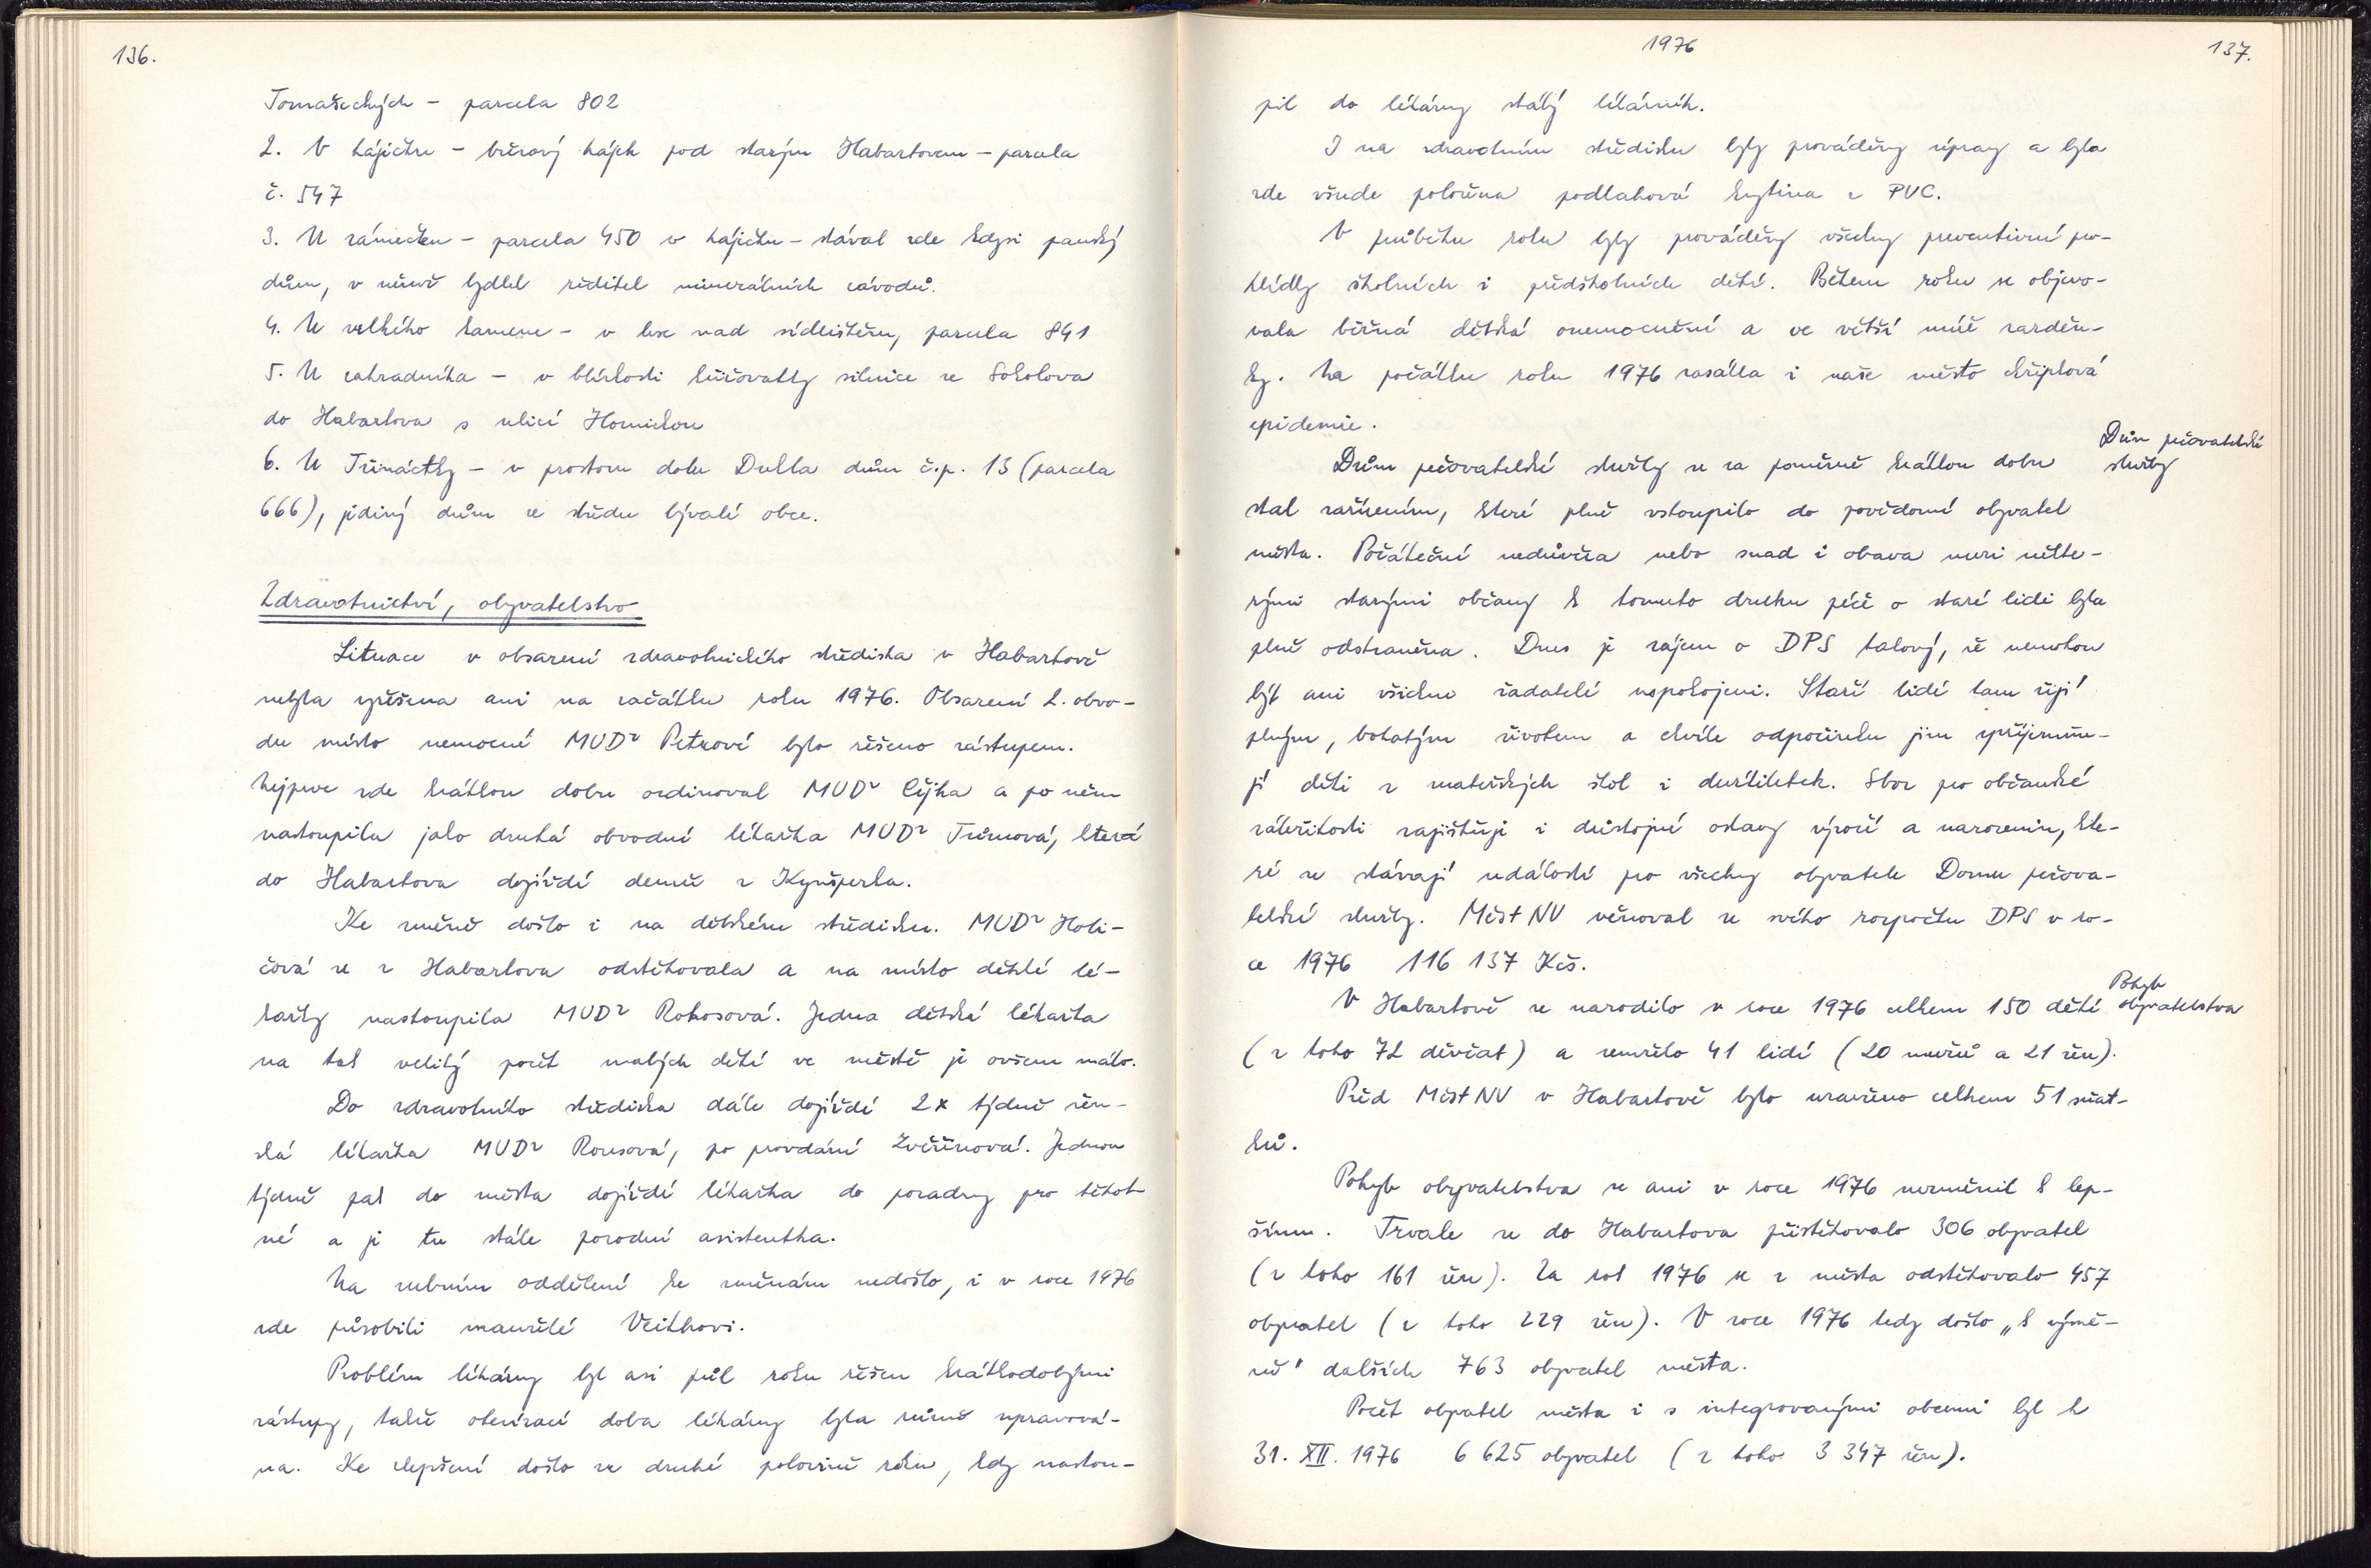 136.
Tomašeckých - parcela 802
2. V hájíčku - březový hájek pod starým Habartovem - parcela
č. 547
3. U zámečku - parcela 450 v hájíčku - stával zde kdysi panský
dům, v němž bydlel ředitel minerálních závodů.
4. U velkého kamene - v lese nad sídlištěm, parcela 841
5. U zahradníka - v blízkosti křižovatky silnice ze Sokolova
do Habartova s ulicí Hornickou
6. U Třináctky - v prostoru dolu Dukla dům č.p. 13 (parcela
666), jediný dům ze středu bývalé obce.
Zdravotnictví, obyvatelstvo
Situace v obsazení zdravotnického střediska v Habartově
nebyla vyřešena ani na začátku roku 1976. Obsazení 2. obvo-
du místo nemocné MUDr Petrové bylo řešeno zástupem.
Nejprve zde krátkou dobu ordinoval MUDr Čejka a po něm
nastoupila jako druhá obvodní lékařka MUDr Tůmová, která
do Habartova dojíždí denně z Kynšperka.
Ke změně došlo i na dětském středisku. MUDr Holi-
čová se z Habartova odstěhovala a na místo dětské lé-
kařky nastoupila MUDr Rokosová. Jedna dětská lékařka
na tak veliký počet malých dětí ve městě je ovšem málo.
Do zdravotního střediska dále dojíždí 2x týdně žen-
ská lékařka MUDr Rousová, po provdání Zvěřinová. Jednou
týdně pak do města dojíždí lékařka do poradny pro těhot-
né a je tu stále porodní asistentka.
Na zubním oddělení ke změnám nedošlo, i v roce 1976
zde působili manželé Veithovi.
Problém lékárny byl asi půl roku řešen krátkodobými
zástupy, takže otevírací doba lékárny byla různě upravová-
na. Ke zlepšení došlo ve druhé polovině roku, kdy nastou-
1976
137.
pil do lékárny stálý lékárník.
I na zdravotním středisku byly prováděny úpravy a byla
zde všude položena podlahová krytina z PVC.
V průběhu roku byly prováděny všechny preventivní pro-
hlídky školních i předškolních dětí. Během roku se objevo-
vala běžná dětská onemocnění a ve větší míře zarděn-
ky. Na počátku roku 1976 zasáhla i naše město chřipková
epidemie.
Dům pečovatelské
služby
Dům pečovatelské služby se za poměrně krátkou dobu
stal zařízením, které plně vstoupilo do povědomí obyvatel
města. Počáteční nedůvěra nebo snad i obava mezi někte-
rými starými občany k tomuto druhu péče o staré lidi byla
plně odstraněna. Dnes je zájem o DPS takový, že nemohou
být ani všichni žadatelé uspokojeni. Staří lidé tam žijí
plným, bohatým životem a chvíle odpočinku jim zpříjemňu-
jí děti z mateřských škol i družiletek. Sbor pro občanské
záležitosti zajišťuje i důstojné oslavy výročí a narozenin, kte-
ré se stávají událostí pro všechny obyvatele Domu pečova-
telské služby. MěstNV věnoval ze svého rozpočtu DPS v ro-
ce 1976 116 137 Kčs.
Pohyb
obyvatelstva
V Habartově se narodilo v roce 1976 celkem 150 dětí
(z toho 72 děvčat) a zemřelo 41 lidí (20 mužů a 21 žen).
Před MěstNV v Habartově bylo uzavřeno celkem 51 sňat-
ků.
Pohyb obyvatelstva se ani v roce 1976 nezměnil k lep-
šímu. Trvale se do Habartova přistěhovalo 306 obyvatel
(z toho 161 žen). Za rok 1976 se z města odstěhovalo 457
obyvatel (z toho 229 žen). V roce 1976 tedy došlo „k výmě-
ně" dalších 763 obyvatel města.
Počet obyvatel města i s integrovanými obcemi byl k
31. XII. 1976 6 625 obyvatel (z toho 3 347 žen).